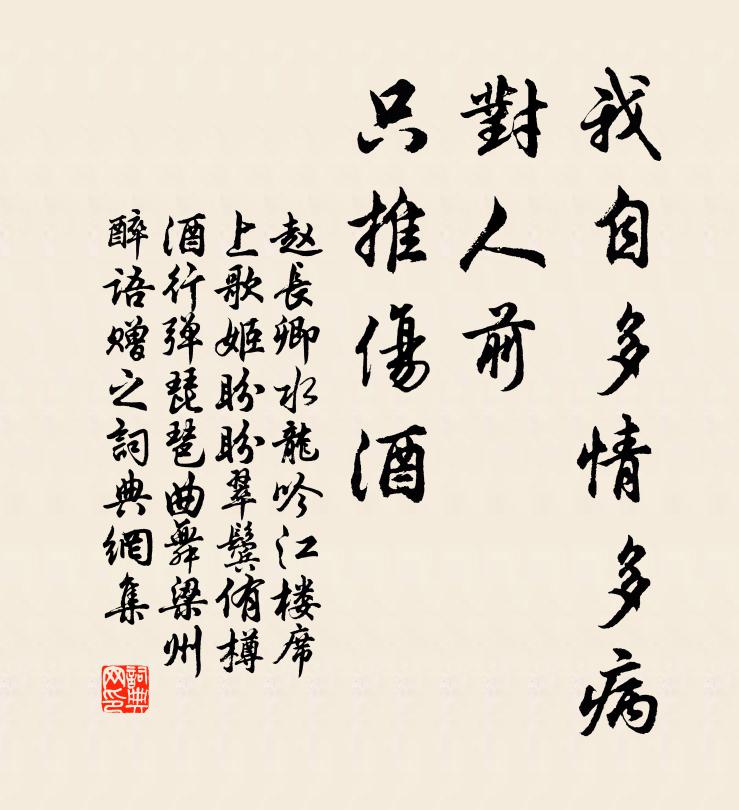 我自多情多病
對人前
只推傷酒
赵長卿水龍吟江楼席
上歌姬盼盼翠鬟侑樽
酒行弹琵琶曲舞梁州
醉语赠之詞典網集
詞典
网印